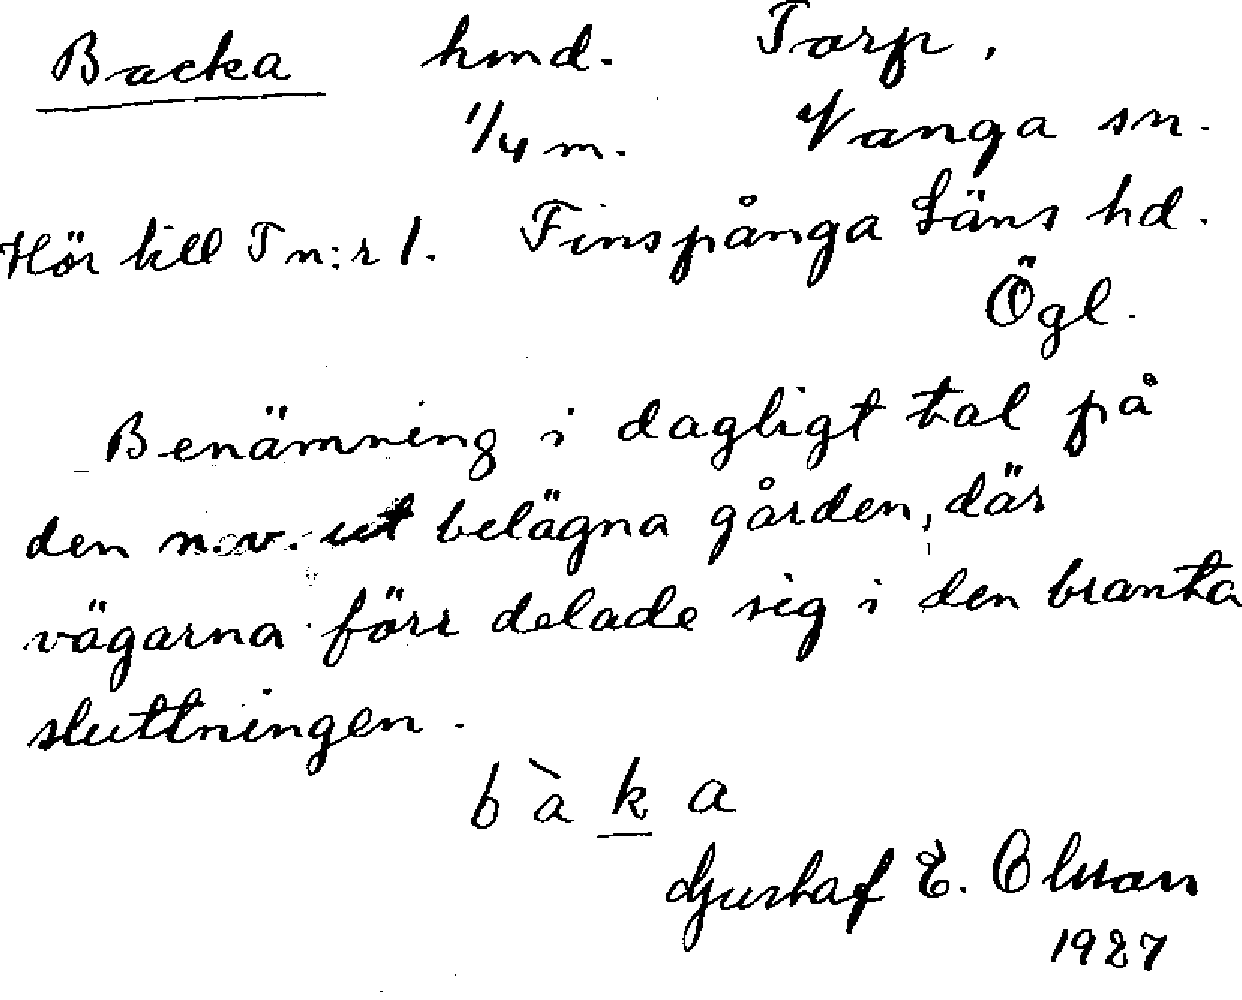 Backa hmd. Torp,
1/4 m. Vånga sn.
Hör till T n:r 1. Finspånga Läns hd.
Ögl.
Benämning i dagligt tal på
den n.v. ut belägna gården, där
vägarna förr delade sig i den branta
sluttningen.
b à k a
Gustaf E. Olsson
1927